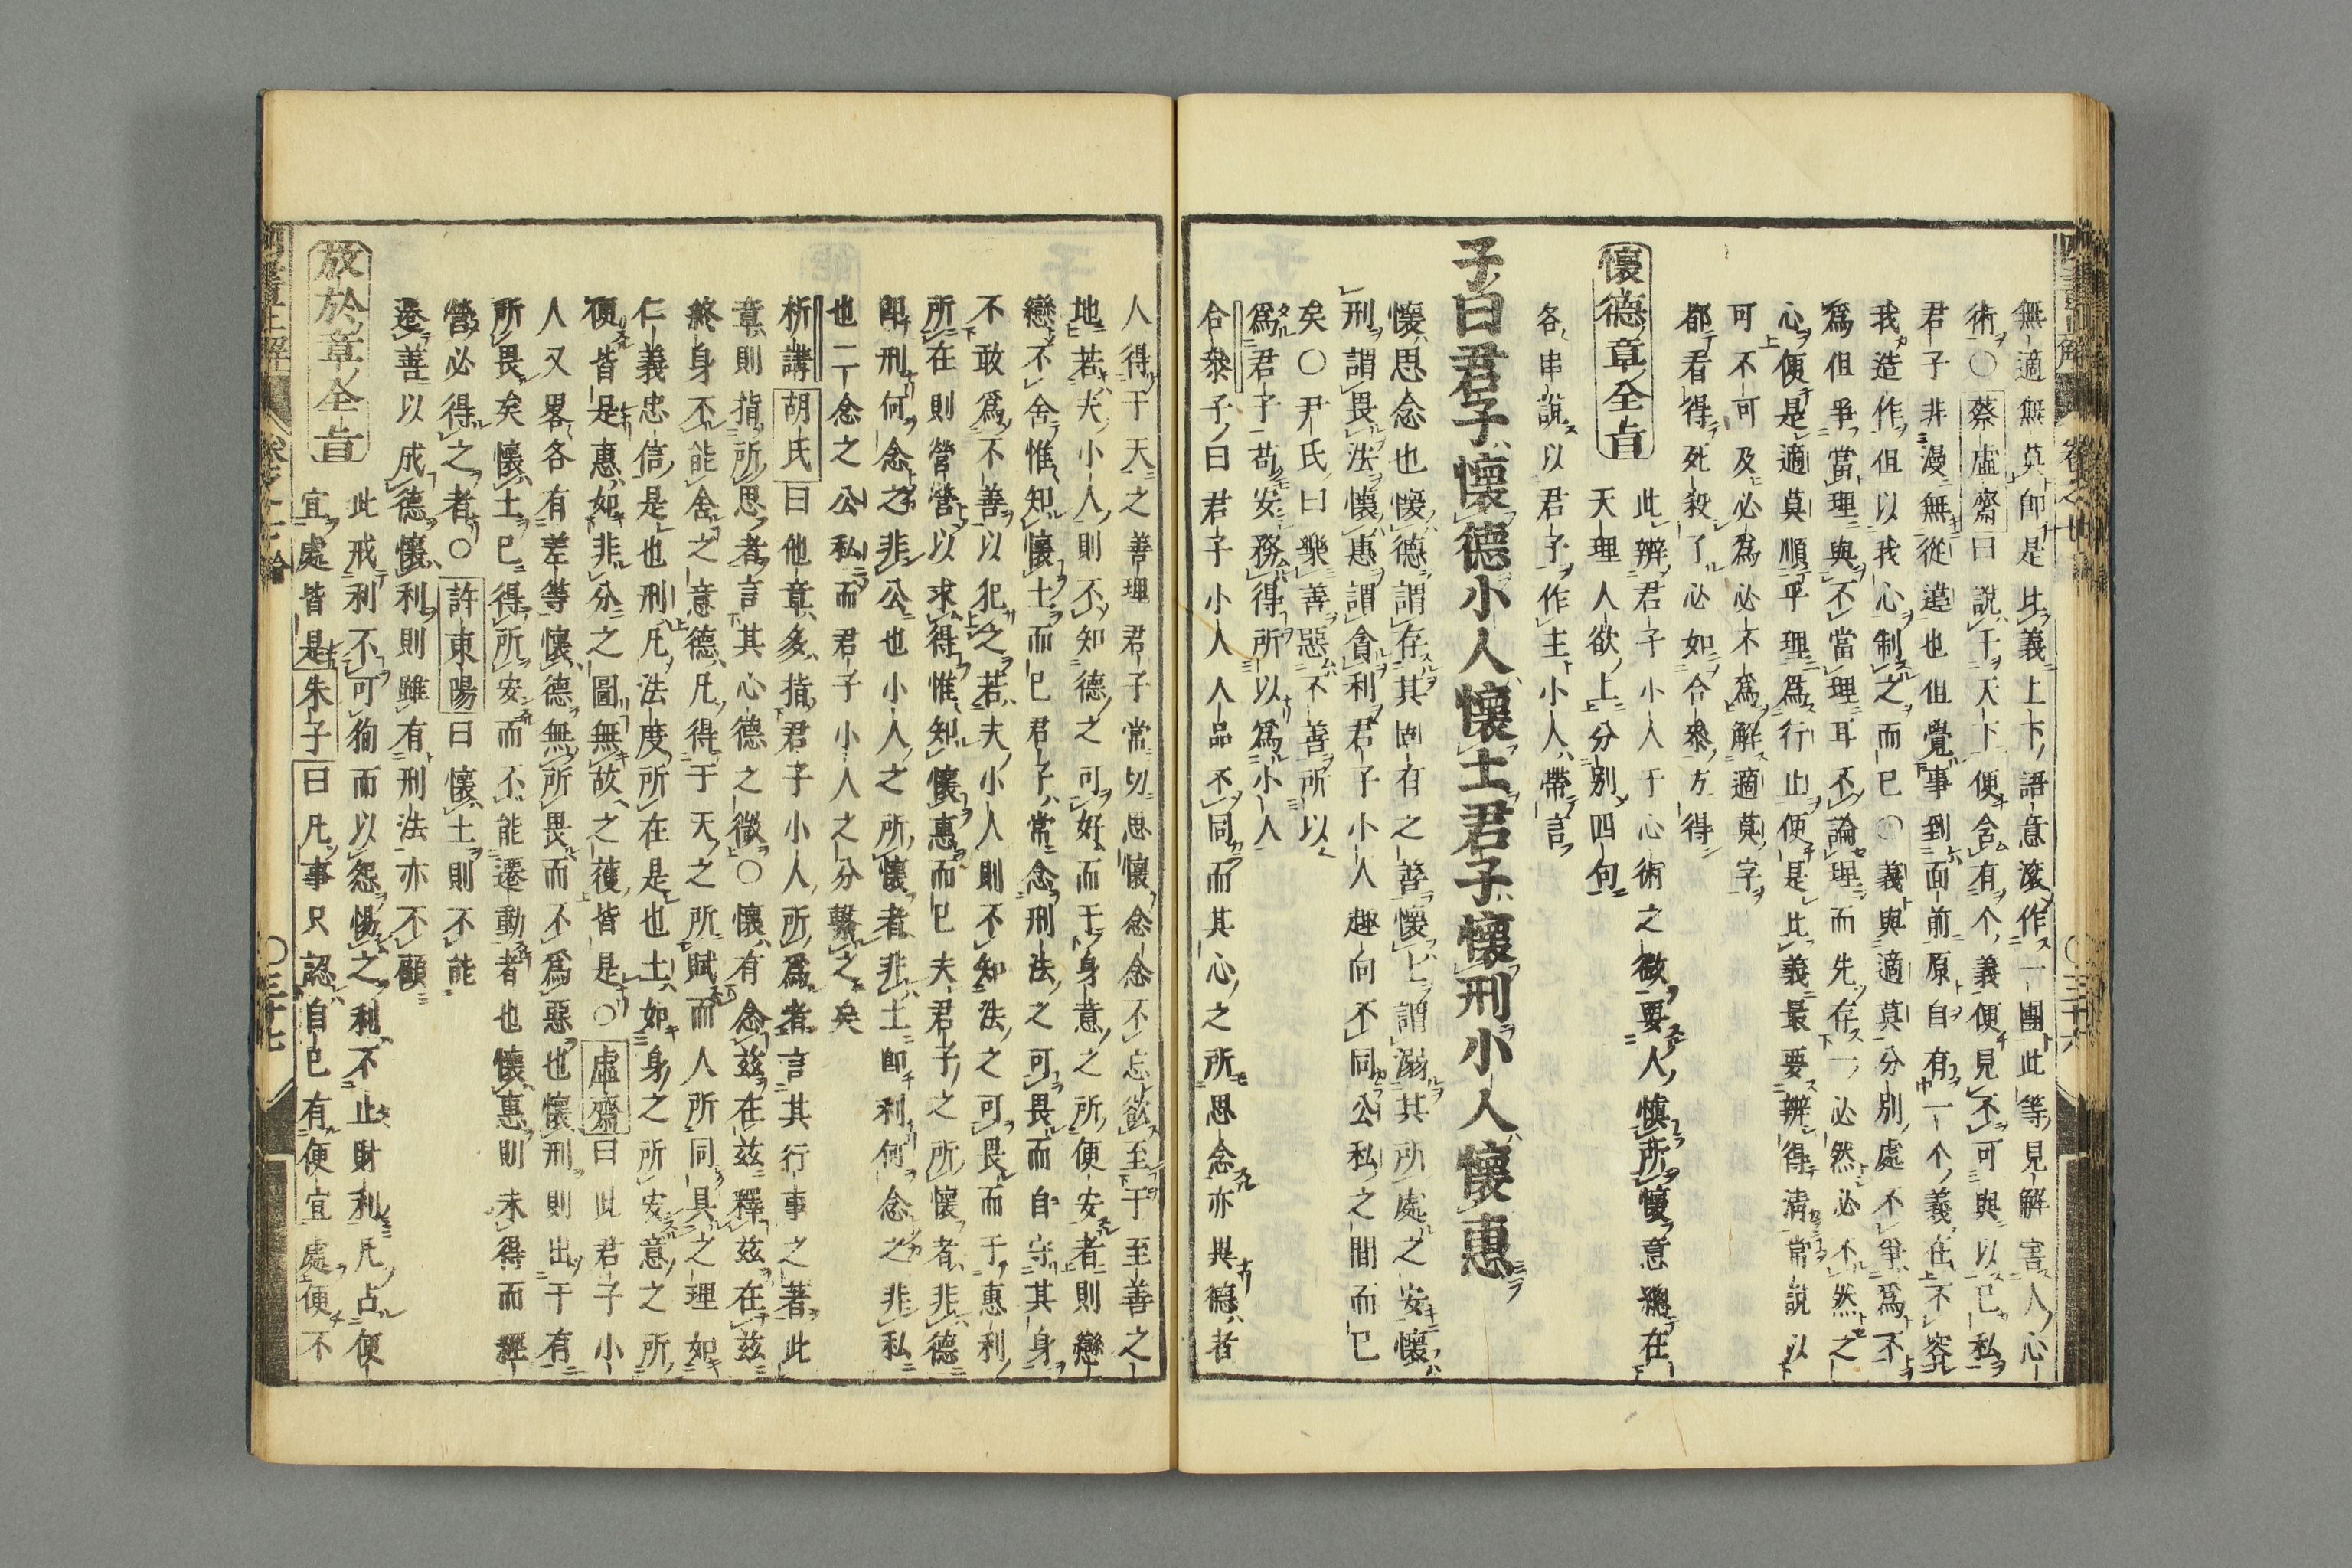 無適無莫即是比義上下語意滚作一團此等見解害人心
術○蔡虛齋曰說于天下便舍有个義便見不可與以已私
君子非漫無從違也但覺事到面前原自有一个義在不容
我造作但以我心制之而已○義與適莫分別處不爭爲不
爲但爭當理與不當理耳不論理而先存一必然必不然之
心便是適莫順乎理爲行止便是比義最要辨得清常說以
可不可及必爲必不爲解適莫字
都看得死殺了必如合參方得
懷德章全旨
此辨君子小人于心術之微要人慎所懷意總在
天理人欲上分別四句
各串說以君子作主小人帶言
子曰君子懷德小人懷土君子懷刑小人懷惠
懷思念也懷德謂存其固有之善懷土謂溺其所處之安懷
刑謂畏法懷惠謂貪利君子小人趣向不同公私之間而已
矣○尹氏曰樂善惡不善所以
爲君子苟安務得所以爲小人
合參子曰君子小人人品不同而其心之所思念亦異德者
人得于天之善理君子常切思懷念念不忘欲至于至善之
地若夫小人則不知德之可好而于身意之所便安者則戀
戀不舍惟知懷土而已君子常念刑法之可畏而自守其身
不敢爲不善以犯之若夫小人則不知法之可畏而于惠利
所在則營營以求得惟知懷惠而已夫君子之所懷者非德
即刑何念之非公也小人之所懷者非土即利何念之非私
也一念之公私而君子小人之分繫之矣
析講胡氏曰他章多指君子小人所爲者言其行事之著此
章則指所思者言其心德之微○懷有念兹在兹釋兹在兹
終身不能舍之意德凡得于天之所賦而人所同具之理如
仁義忠信是也刑凡法度所在是也土如身之所安意之所
便皆是惠如非分之圖無故之獲皆是○虛齋曰此君子小
人又畧各有差等懷德無所畏而不爲惡也懷刑則出于有
所畏矣懷土已得所安而不能遷動者也懷惠則未得而經
營必得之者○許東陽曰懷土則不能
遷善以成德懷利則雖有刑法亦不顧
放於章全旨
此戒利不可狥而以怨惕之利不止財利凡占便
宜處皆是朱子曰凡事只認自已有便宜處便不